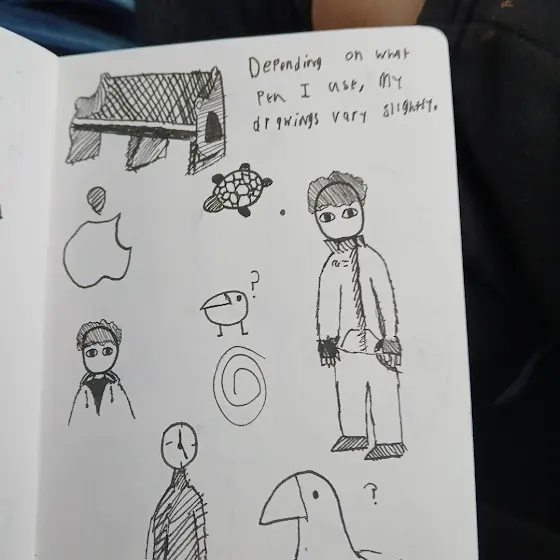 Depending on what
Pen I use, My
drawings vary slightly.
?
?